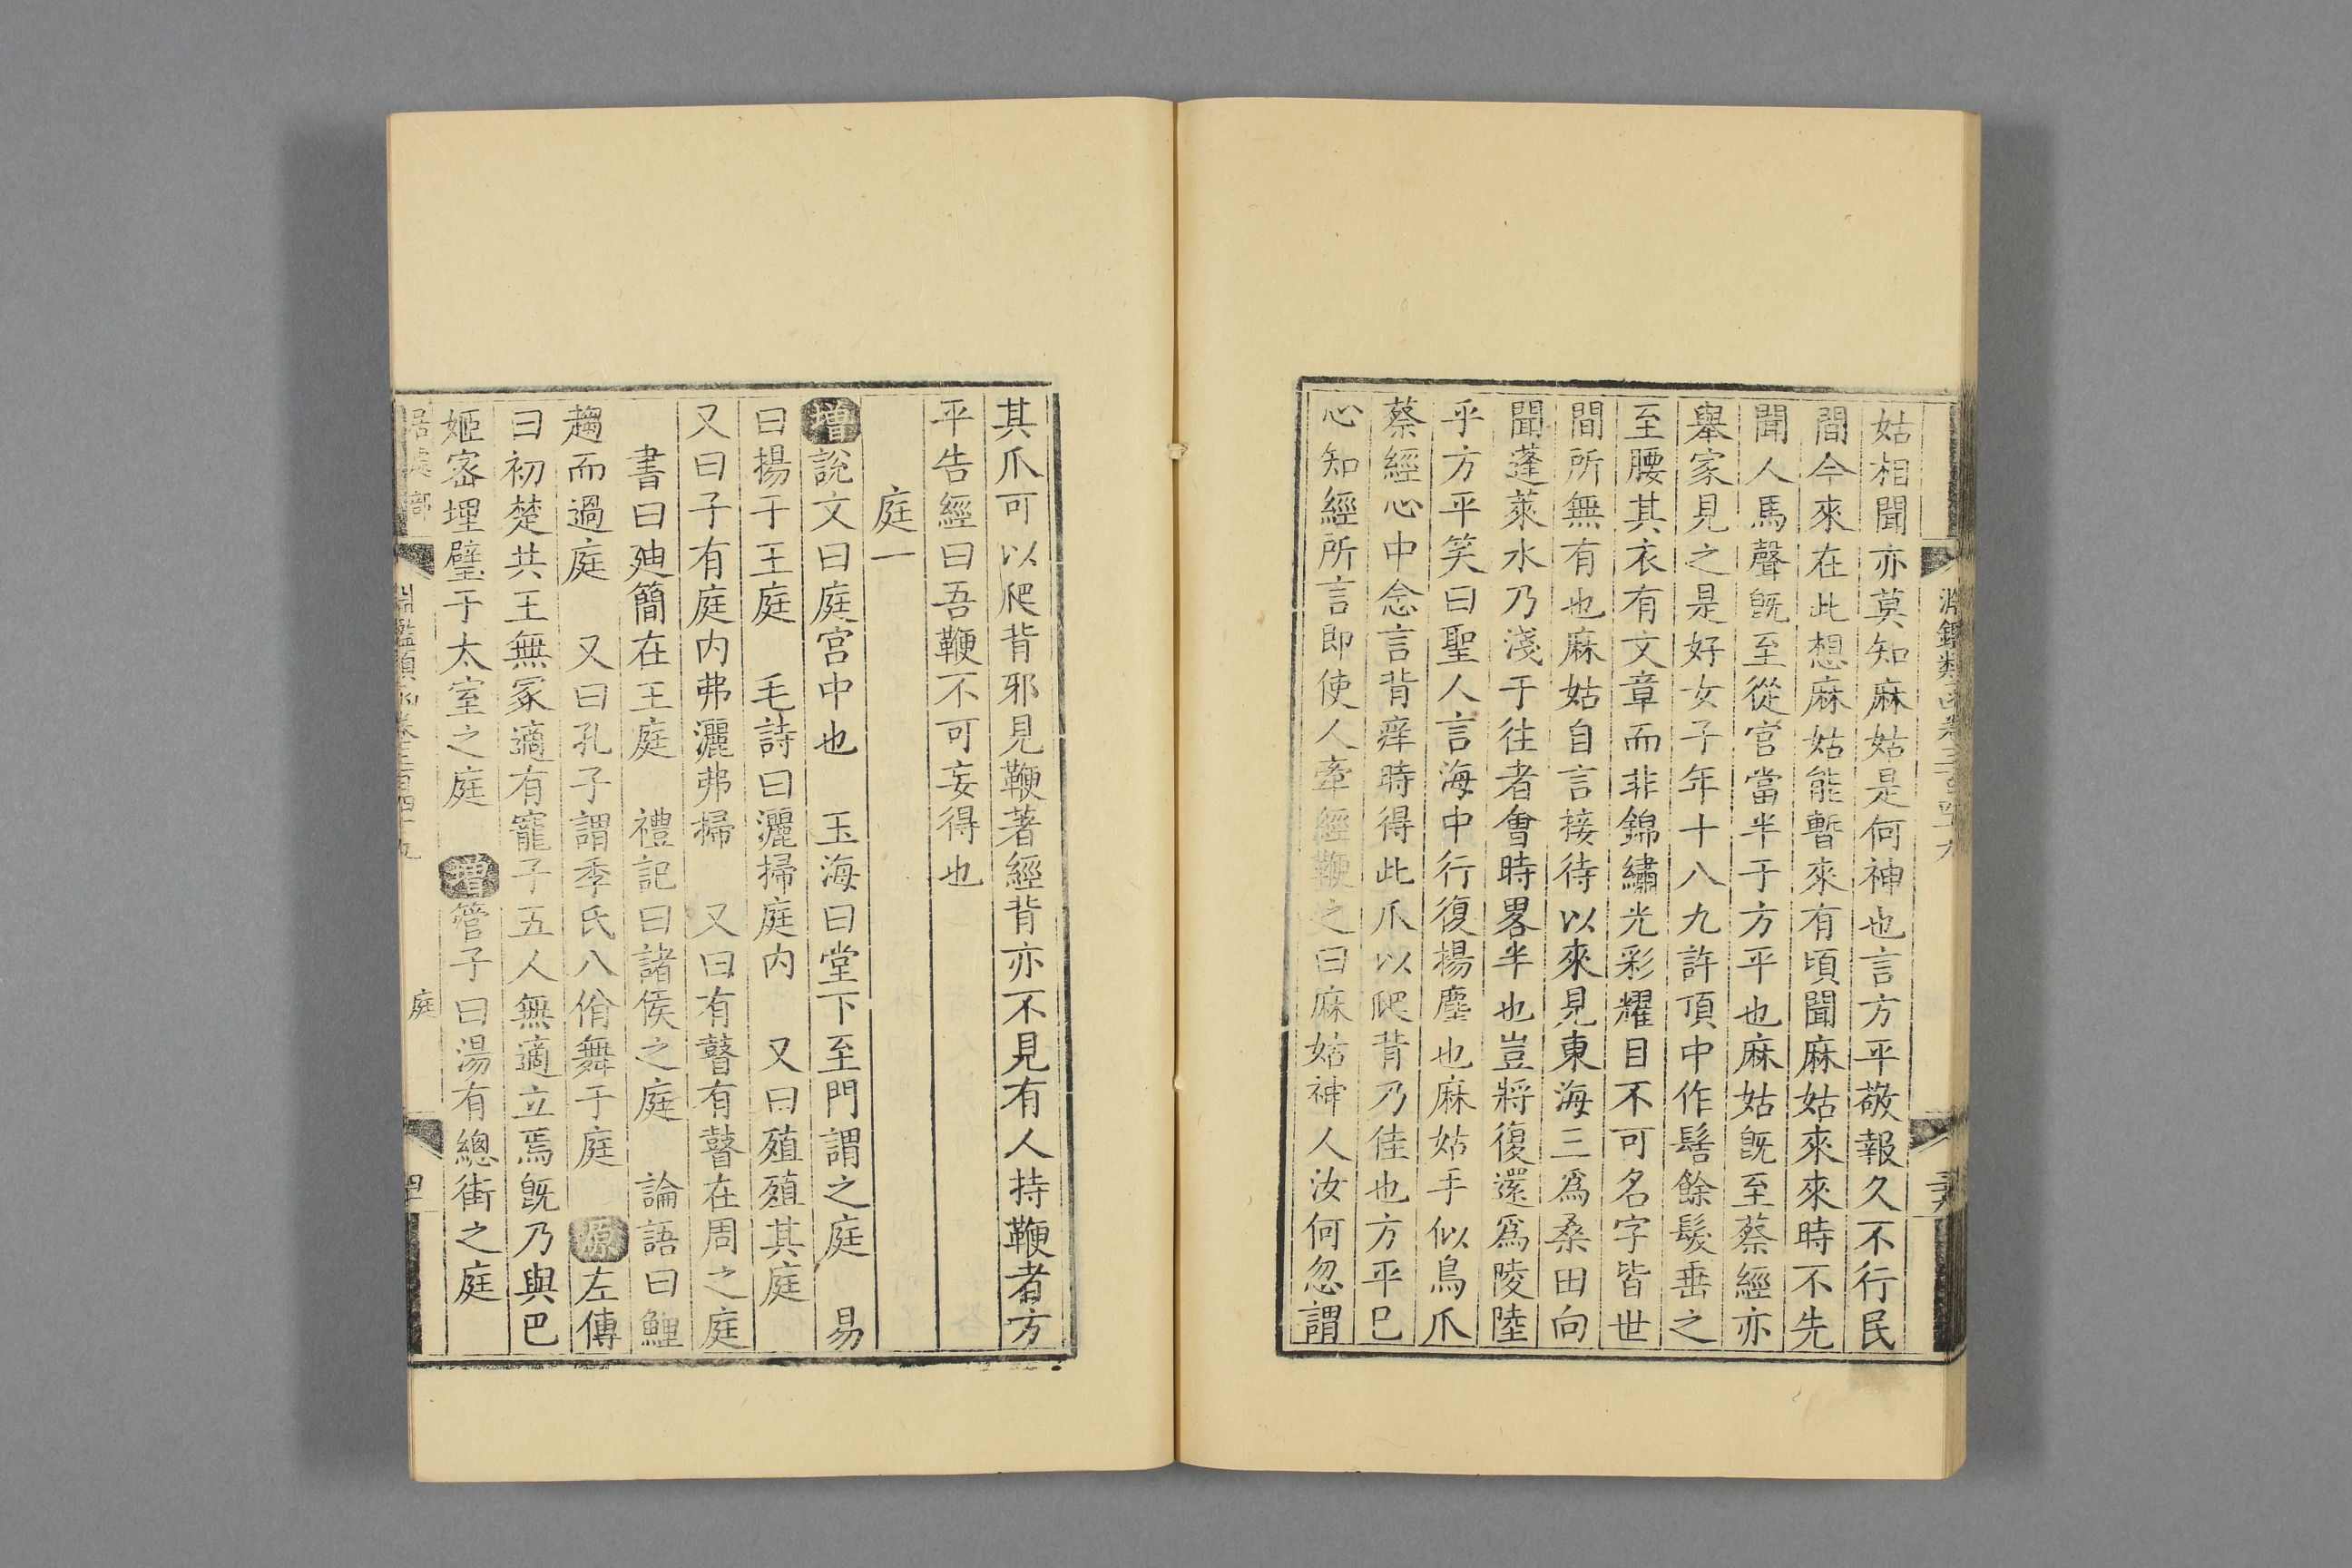 姑相聞亦莫知麻姑是何神也言方平敬報久不行民
間今來在此想麻姑能暫來有頃聞麻姑來來時不先
聞人馬聲旣至從官當半于方平也麻姑旣至蔡經亦
舉家見之是好女子年十八九許頂中作髻餘髮垂之
至腰其衣有文章而非錦繡光彩耀目不可名字皆世
間所無有也麻姑自言接待以來見東海三爲桑田向
聞蓬萊水乃淺于往者會時畧半也豈將復還爲陵陸
乎方平笑曰聖人言海中行復揚塵也麻姑手似鳥爪
蔡經心中念言背痒時得此爪以爬背乃佳也方平巳
心知經所言即使人牽經鞭之曰麻姑神人汝何忽謂
其爪可以爬背邪見鞭著經背亦不見有人持鞭者方
平告經曰吾鞭不可妄得也
庭一
增說文曰庭宮中也　玉海曰堂下至門謂之庭　易
曰揚于王庭　毛詩曰灑掃庭内　又曰殖殖其庭
又曰子有庭内弗灑弗掃　又曰有瞽有瞽在周之庭
書曰廸簡在王庭　禮記曰諸侯之庭　論語曰鯉
趨而過庭　又曰孔子謂季氏八佾舞于庭　原左傳
曰初楚共王無冢適有寵子五人無適立焉旣乃與巴
姬密埋璧于太室之庭　增管子曰湯有總街之庭
居處部　淵鑑類函卷三百四十九　庭　四